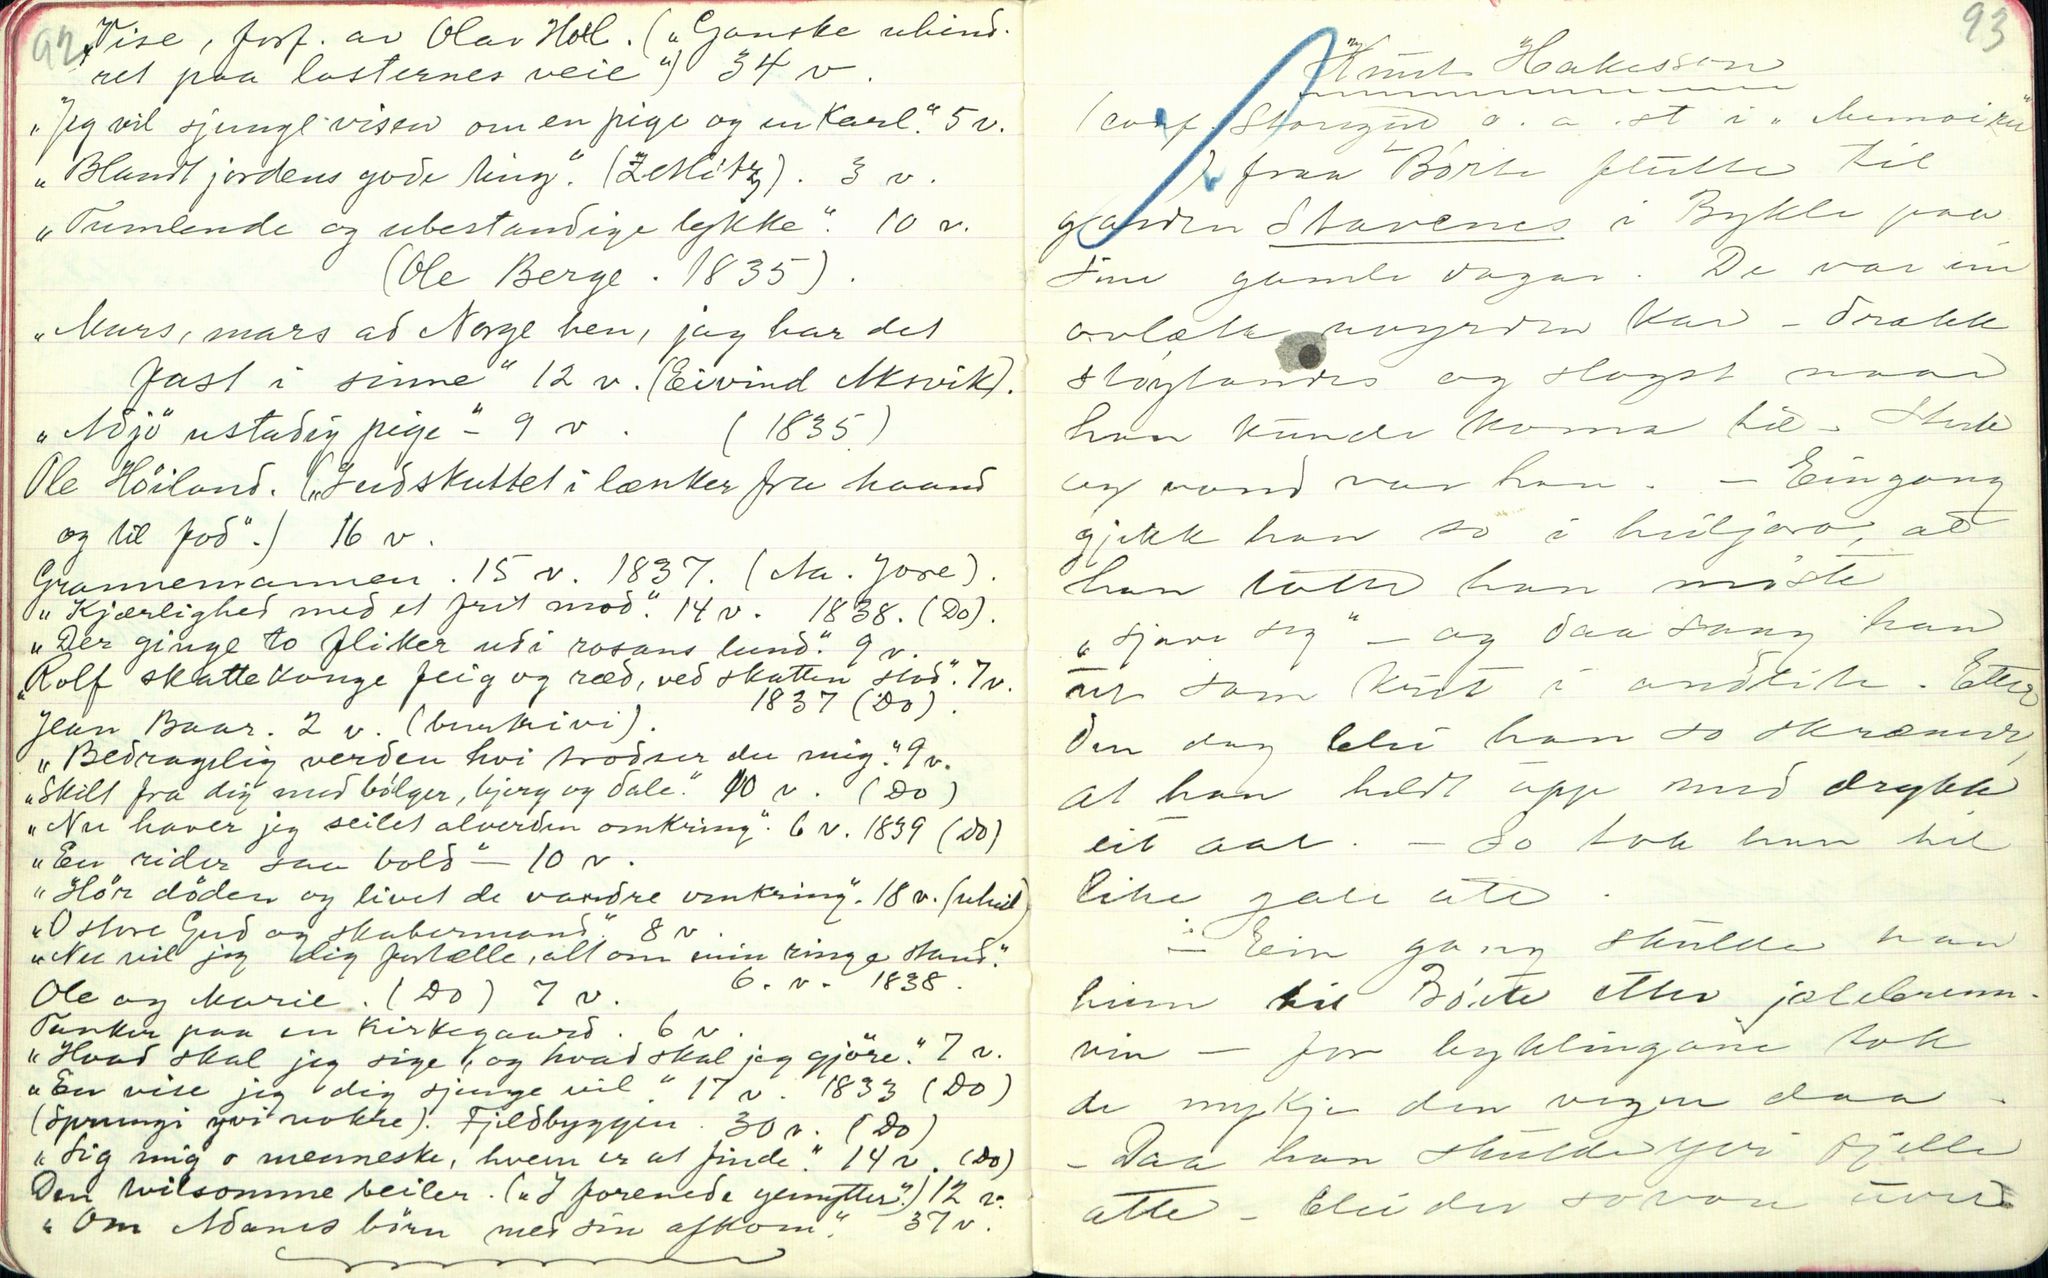 92
Vise, forf. av Olav Holl. („Ganske uhind-
ret paa lasternes veie“) 34 v.
„Jeg vil sjunge visen om en pige og en karl.“ 5 v.
„Blandt jordens gode ting“. (Zetlitz). 3 v.
„Tumlende og ubestandige lykke“. 10 v.
(Ole Berge. 1835).
„Mars, mars ad Norge hen, jag har det
fast i sinne“ 12 v. (Eivind Aksvik).
„Adjö ustadig pige“ – 9 v. (1835)
Ole Höiland. („Indskuttet i lænker fra haand
og til fod“.) 16 v.
Grannemannen. 15 v. 1837. (Aa. Jore).
„Kjærlighed med et frit mod“. 14 v. 1838. (Do).
„Der ginge to fliker udi rosans lund“. 9 v.
„Rolf skattekonge feig og ræd, ved skatten stod“. 7 v.
1837 (Do).
Jean Baar. 2 v.
„Bedragelig verden hvi trodser du mig“. 9 v.
„Skilt fra dig med bølger, bjerg og dale“. 10 v. (Do)
„Nu haver jeg seilet alverden omkring“. 6 v. 1839 (Do)
„En rider saa bold“ – 10 v.
„Hör döden og livet de vandre omkring“. 18 v.
„O store Gud og skabermand“. 8 v.
„Nu vil jeg dig fortælle, alt om min ringe stand“.
6. v. 1838.
Ole og Marie. (Do) 7 v.
Tanker paa en kirkegaard. 6 v.
„Hvad skal jeg sige, og hvad skal jeg gjöre“. 7 v.
„En vise jeg dig sjunge vil“ 17 v. 1833 (Do)
(Sprungi yvi nokke). Fjeldbyggen. 30 v. (Do)
„Sig mig o menneske, hvem er at finde“. 14 v. (Do)
Den tvilsomme beiler. („I forenede gemytter“.) 12 v.
„Om Adams börn med sin afkom“. 37 v.
93
Knut Hakesson
(conf. Storegut o. a. st i „Memoiren“
) fraa Børte flutte til
garden Stavenes i Bykle paa
sine gamle dagar. De var ein
avlæte uvyrden kar – drakk
støytandes og slogst naar
han kunde koma til – Sterk
og vond var han. – Eingong
gjekk han so i huljaro, at
han totte han møste
„sjaa seg“ – og daa sang han
ut som krit i andlite. Etter
den dag blei han so skræmd,
at han heldt upp med drykk
eit aar. – So tok han til
like gale atte.
– Ein gong skulde han
heim til Børte etter julebrenn-
vin – for byklingane tok
de mykje den vegen daa –
– Daa han skulde yvi fjelle
atte – blei der sovori uver